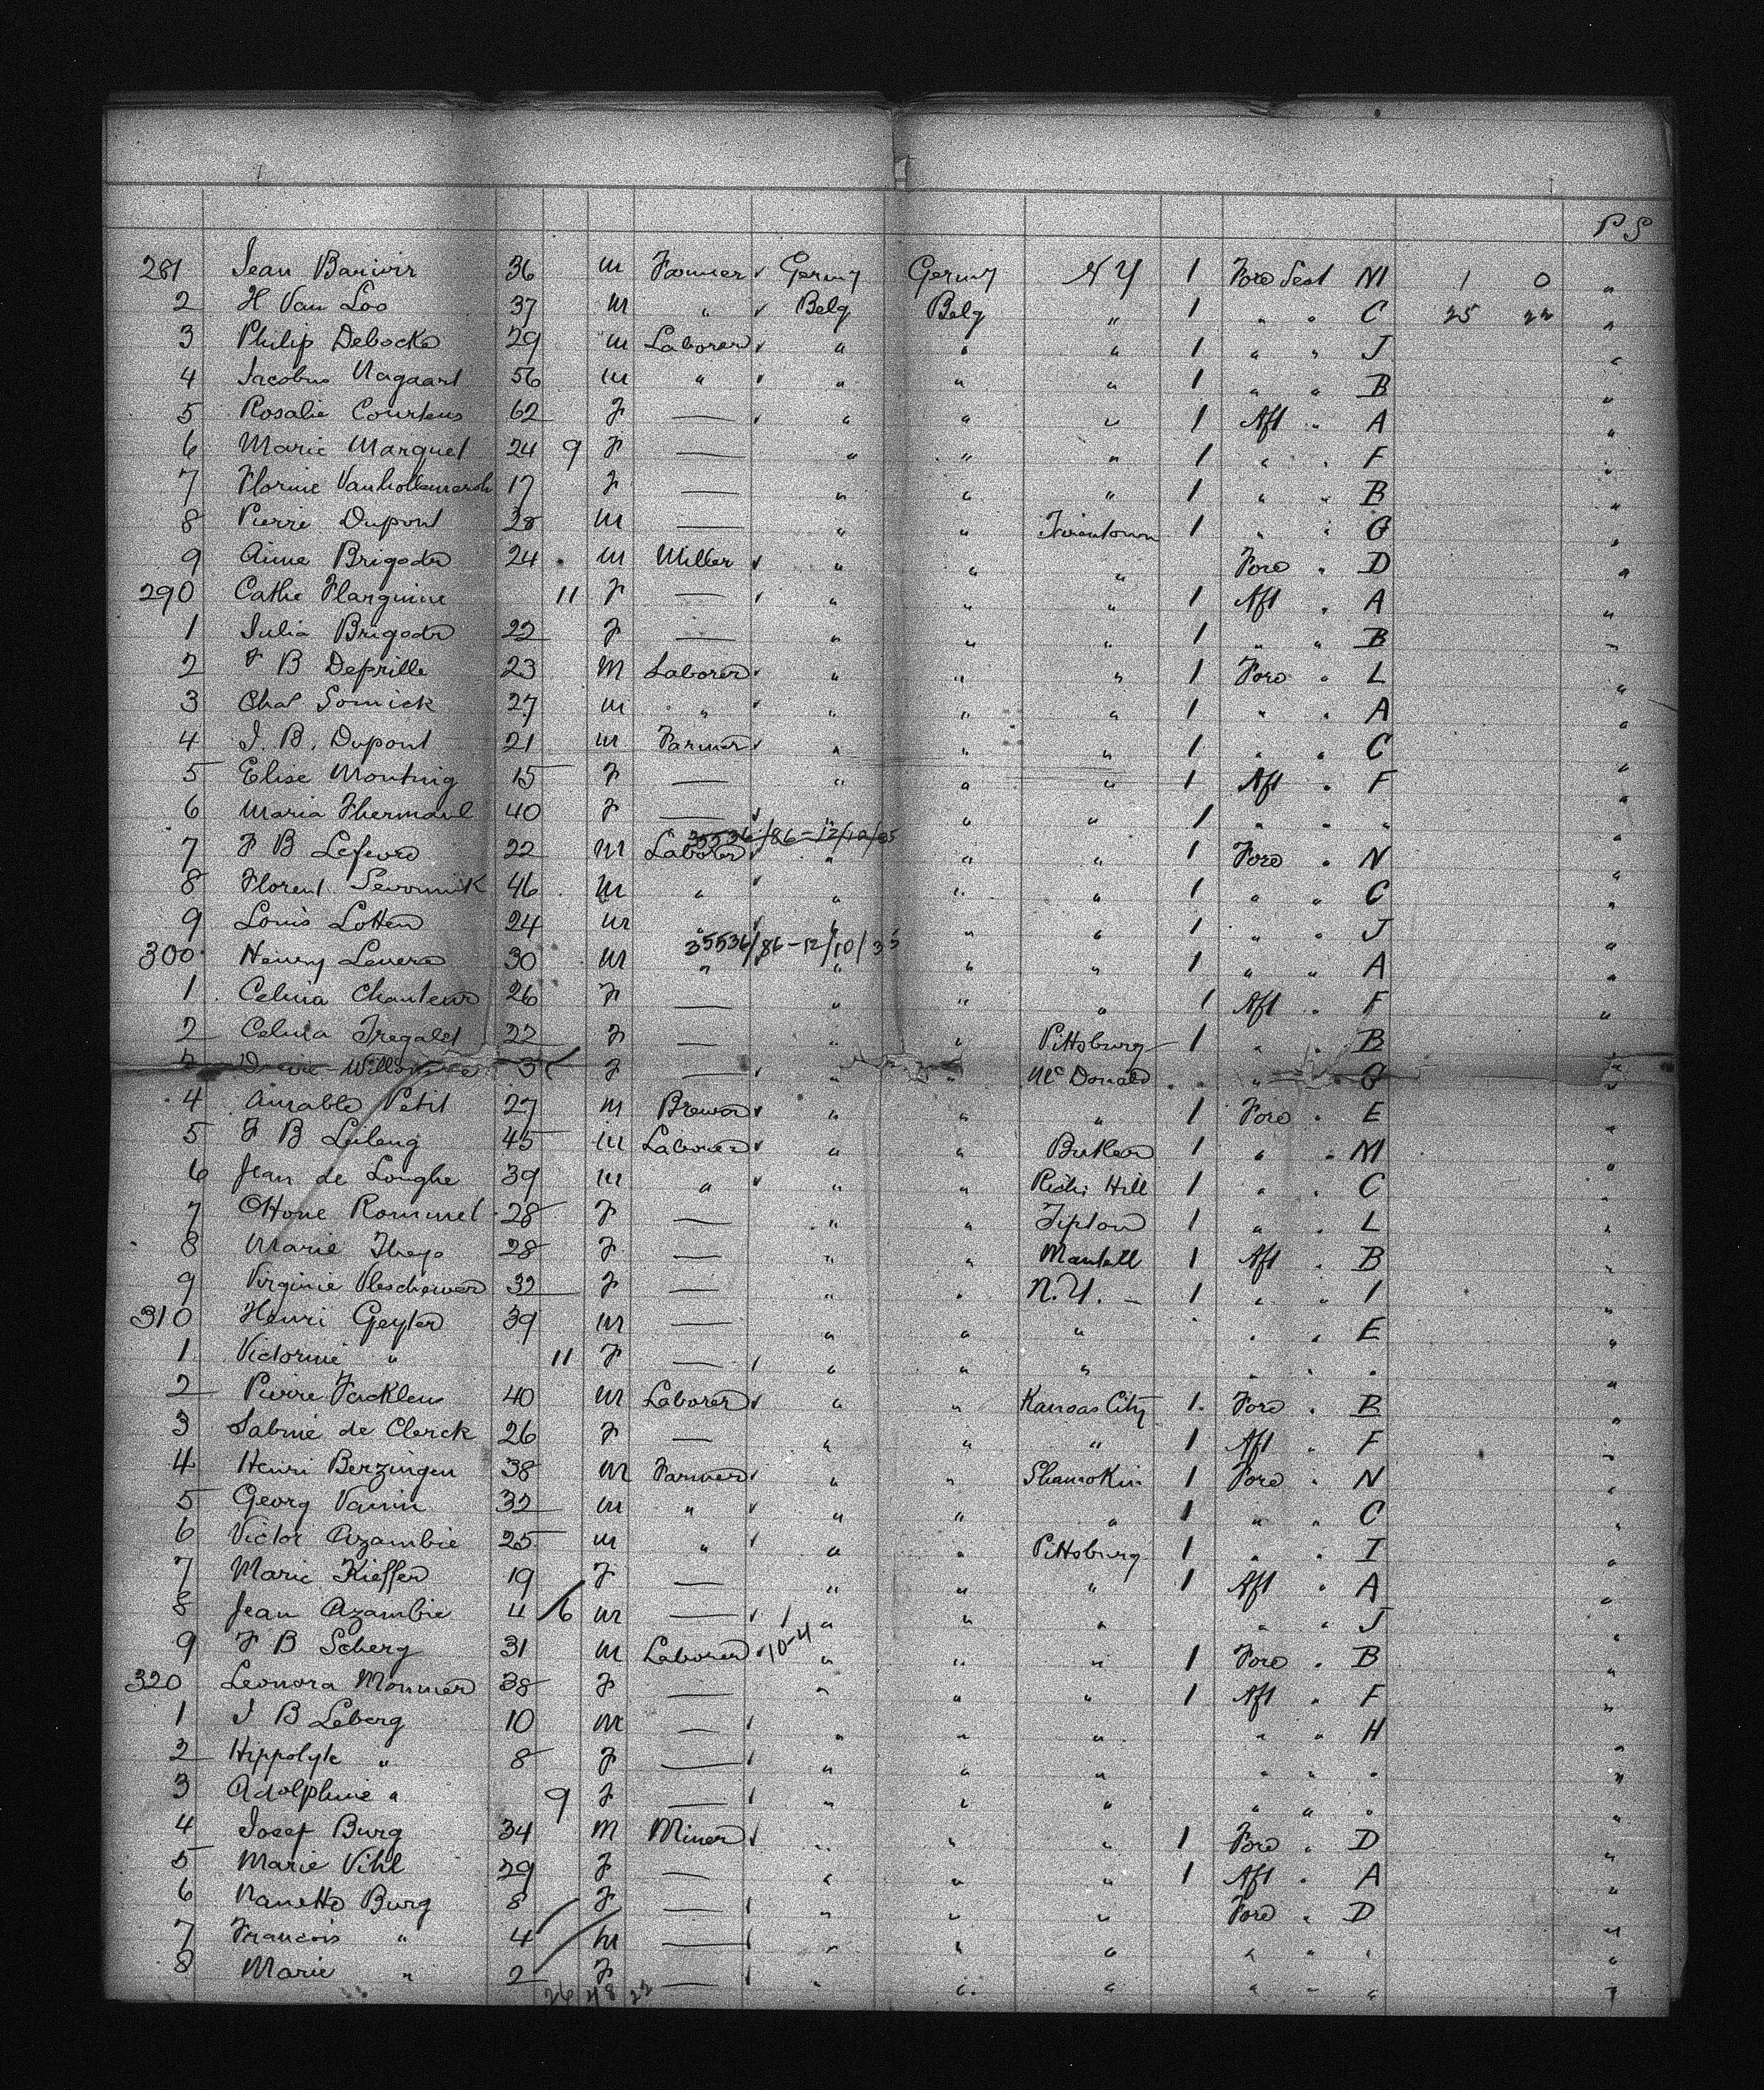 P S
281 Jean Barivir 36 m Farmer ✓ Germy Germy N Y 1 Fore Sect M 1 0 "
2 H Van Loo 37 m " ✓ Belg Belg " 1 " " C 25 22 "
3 Philip Debocke 29 m Laborer ✓ " " " 1 " " J "
4 Jacobus 56 m " ✓ " " " 1 " " B "
5 Rosalie Courtens 62 F — ✓ " " " 1 Aft " A "
6 Marie Marquet 24 9 F — " " " 1 " " F "
7 Florine 17 F — " " " 1 " " B "
8 Pierre Dupont 28 m — " " 1 " " G "
9 Aime Brigode 24 m Miller ✓ " " " Fore " D "
290 Cathe Flarquine 11 F — ✓ " " " 1 Aft " A "
1 Julia Brigode 22 F — " " " 1 " " B "
2 J B Deprille 23 M Laborer ✓ " " " 1 Fore " L "
3 Chas Somick 27 m " ✓ " " " 1 " " A "
4 J. B. Dupont 21 m Farmer ✓ " " " 1 " " C "
5 Elise 15 F — " " " 1 Aft " F "
6 Maria 40 F — ✓ " " " 1 " " " "
35536/86-12/10/35
7 J B 22 m Laborer ✓ " " " 1 Fore " N "
8 Florent 46 m " ✓ " " " 1 " " C "
9 Louis Lotten 24 m " ✓ " " " 1 " " J "
35536/86-12/10/35
300 Henry 30 m " ✓ " " " 1 " " A "
1 Celina Chanteur 26 F — " " " 1 Aft " F "
2 Celina Tregalet 22 F — " " Pittsburg 1 " " B "
3 F — ✓ " " Mc Donald " " G "
4 Aimable Petit 27 m Brewer ✓ " " " 1 Fore " E "
5 J B 45 m Laborer ✓ " " Butler 1 " " M "
6 Jean de Longhe 39 m " ✓ " " Rich Hill 1 " " C "
7 Rommel 28 F — " " Tipton 1 " " L "
8 Marie 28 F — " " 1 Aft " B "
9 Virginie 32 F — " " N.Y. — 1 " " I "
310 Henri Geyter 39 m — " " " " " E "
1 Victorine " 11 F — ✓ " " " " " " "
2 Pierre Facklens 40 m Laborer ✓ " " Kansas City 1 Fore " B "
3 Sabrine de Clerck 26 F — " " " 1 Aft " F "
4 Henri Berzingen 38 m Farmer ✓ " " Shamokin 1 Fore " N "
5 Georg Vanin 32 m " ✓ " " " 1 " " C "
6 Victor Azambie 25 m " ✓ " " Pittsburg 1 " " I "
7 Marie Kieffer 19 F — " " " 1 Aft " A "
8 Jean Azambie 4 6 m — ✓ " " " " " J "
9 J B Scherg 31 m Laborer ✓ 10-4 " " " 1 Fore " B "
320 Leonora Monnier 38 F — " " " 1 Aft " F "
1 J B Leberg 10 m — ✓ " " " " " H "
2 Hippolyte " 8 F — ✓ " " " " " " "
3 Adolphine " 9 F — ✓ " " " " " " "
4 Josef Burg 34 M Miner ✓ " " " 1 Fore " D "
5 Marie Vihl 29 F — " " " 1 Aft " A "
6 Nanette Burg 8 F — ✓ " " " Fore " D "
7 Francois " 4 m — ✓ " " " " " " "
8 Marie " 2 F — ✓ " " " " " " "
26 48 22